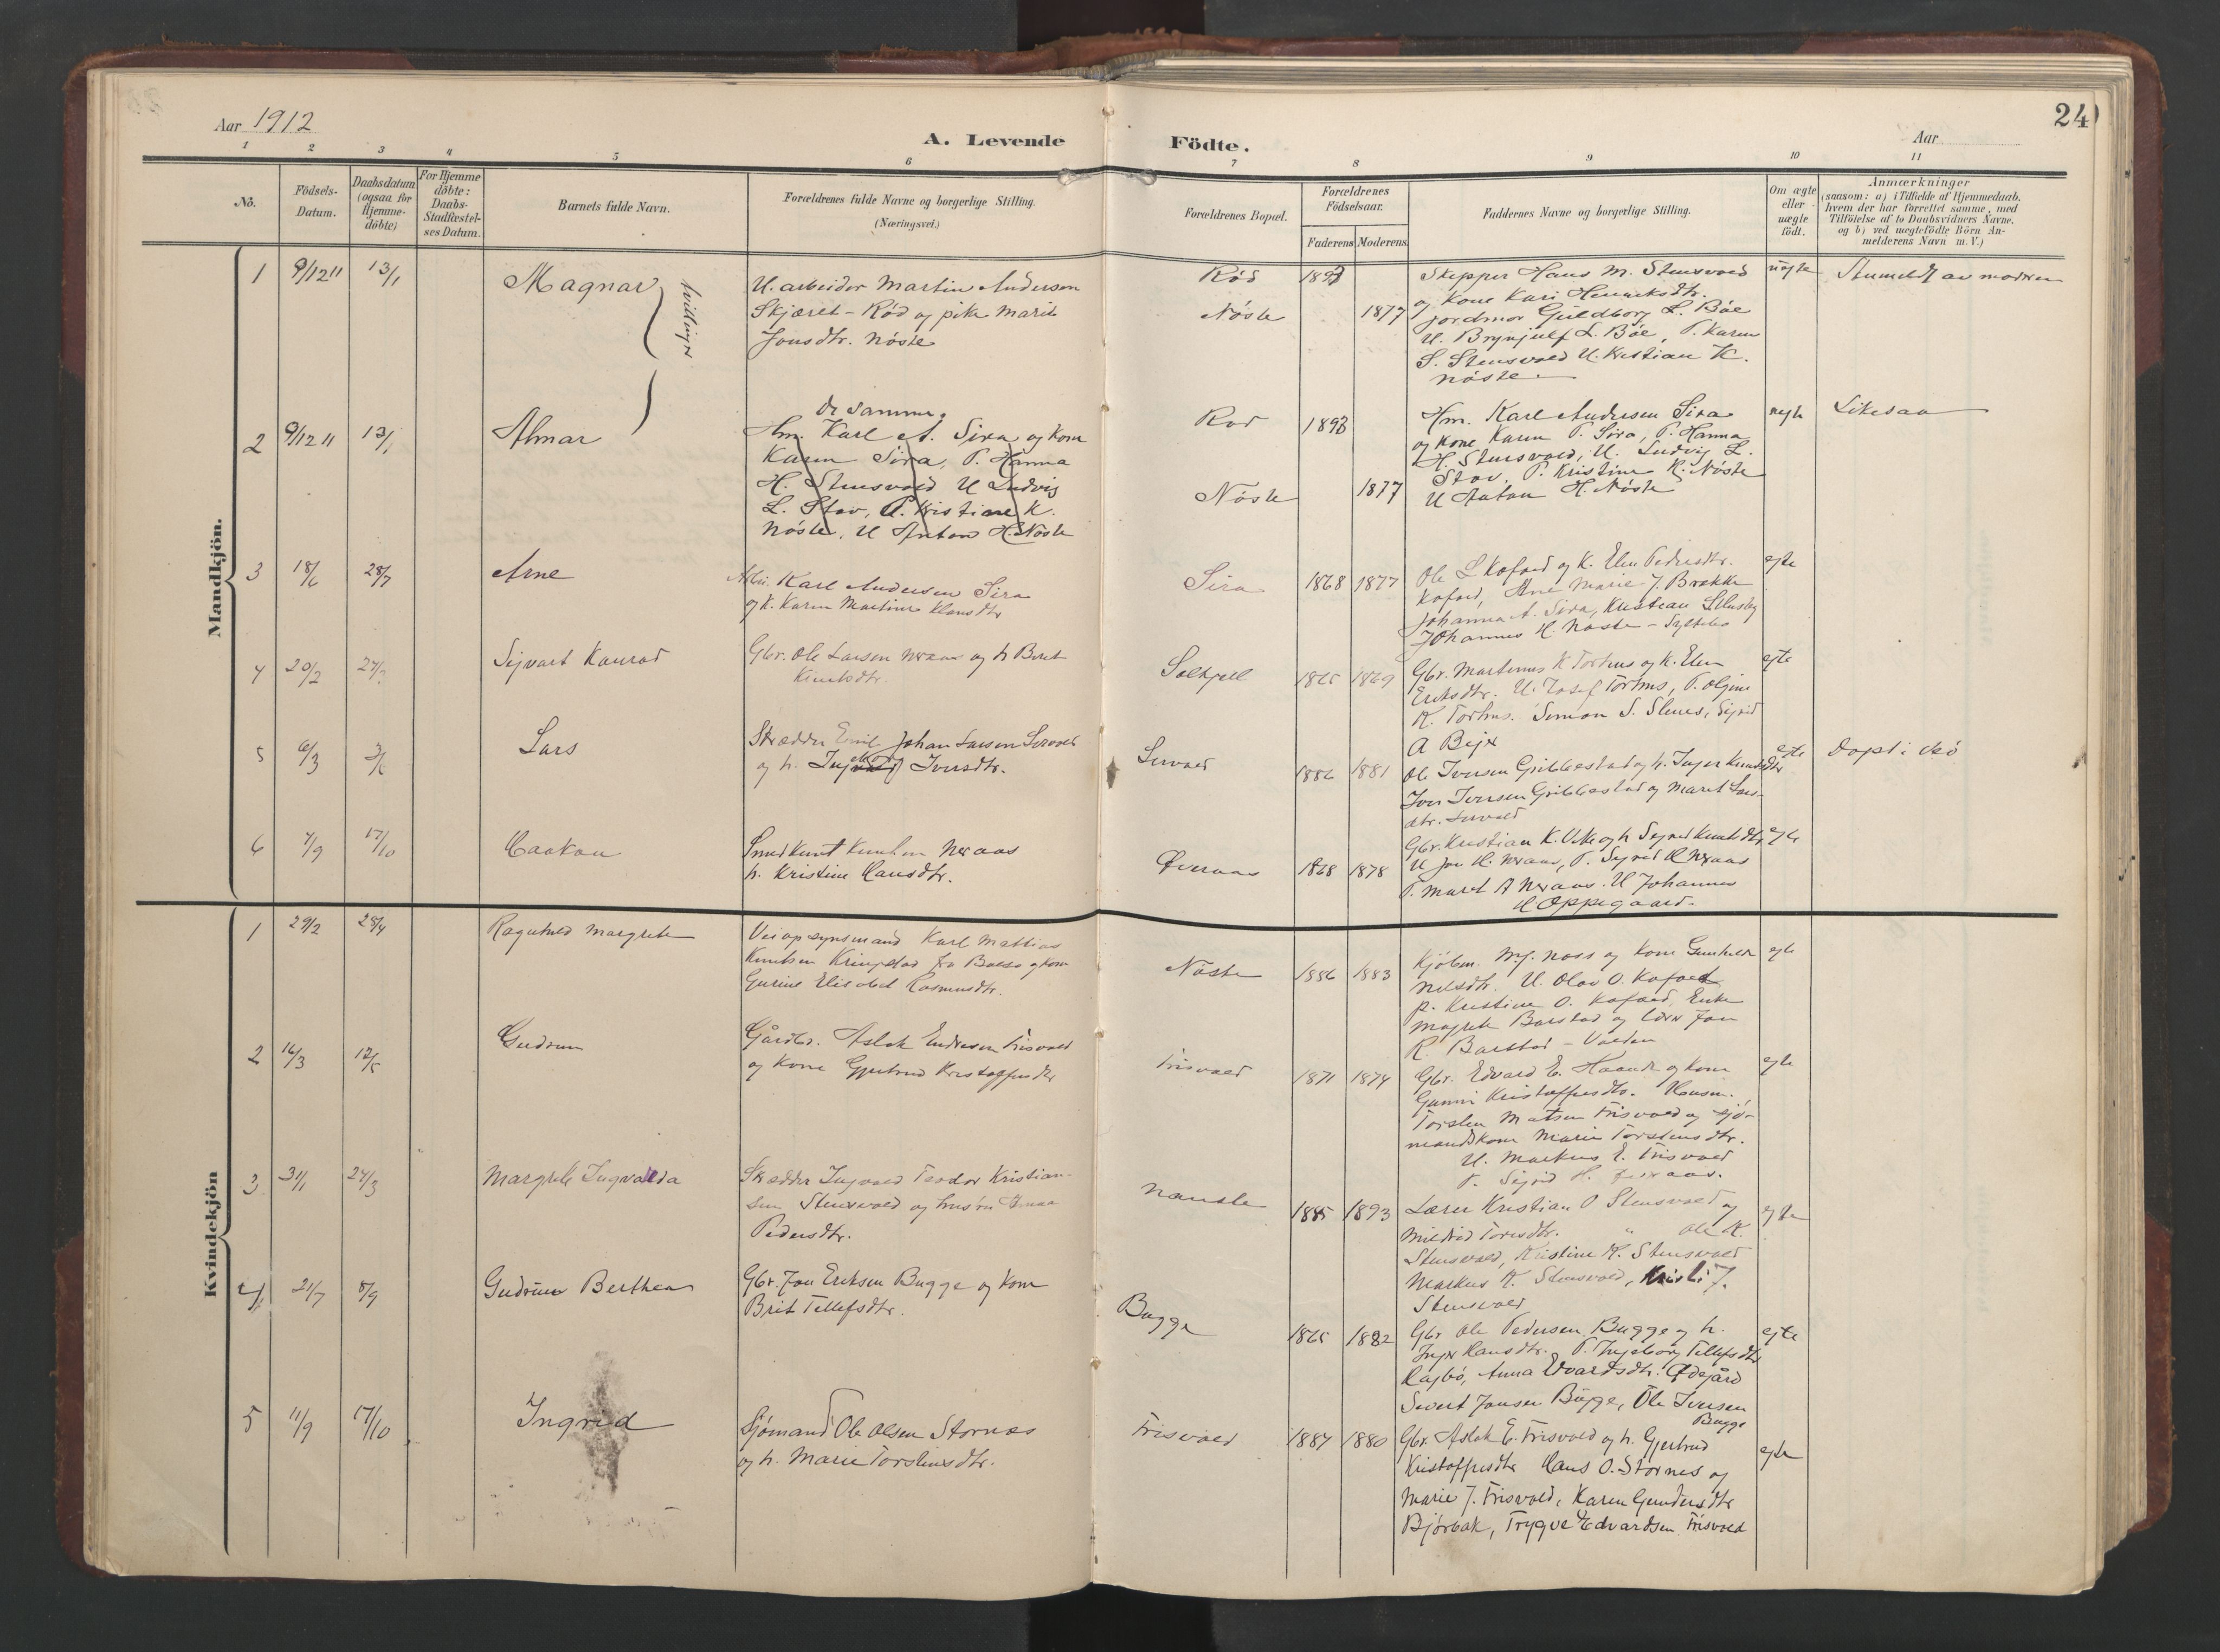 Aar 1912
A. Levende Födte.
Aar
24
1 2 3 4 5 6 7 8 9 10 11
No.
Födsels-
Datum.
Daabsdatum
(ogsaa for
Hjemme-
döbte)
For Hjemme
döbte:
Daabs-
Stadfæstel-
ses Datum.
Barnets fulde Navn.
Forældrenes fulde Navne og borgerlige Stilling.
(Næringsvei.)
Forældrenes Bopæl.
Forældrenes
Födselsaar.
Faderens
Moderens
Faddernes Navne og borgerlige Stilling.
Om ægte
eller
uægte
födt.
Anmærkninger
(saasom: a) i Tilfælde af Hjemmedaab.
hvem der har forrettet samme, med
Tilföielse af to Daabsvidners Navne.
og b) ved uægtefödte Börn An-
melderens Navn m. V.)
Mandkjön.
1 9/12 11 13/1 Magnar
tvillinger
U. arbeider Martin Andersen
Skjæret - Rød og pike Marit
Jonsdtr. Nøste
Rød 1893
Nøste 1877
Skipper Hans M. Stensvold
og Kone Kari Henriksdtr.
jordmor Guldborg L. Böe
U. Brynjulf L. Böe, P. Karen
S. Stensvold U. Kristian K.
Nøste.
uegte
Anmeldt av modren
2 9/12 11 13/1 Almar
de samme.
Hm. Karl A. Sira og kone
Karen Sira, P. Hanna
H. Stensvold U Ludvig
L. Stav, P. Kristine K.
Nöste, U Anton H. Nöste
Rød 1893
Nöste 1877
Hm. Karl Andersen Sira
og kone Karen P. Sira, P. Hanna
H. Stensvold, U. Ludvig L.
Stav, P. Kristine K. Nöste
U Anton H. Nöste
uegte
Likesaa
3 18/6 28/7 Arne
Arbei. Karl Andersen Sira
og k. Karen Martine Klausdtr
Sira 1868 1877
Ole L Kofoed og K. Elen Pedersdtr.
Kofoed, Ane Marie J. Brække
Johanna A. Sira, Kristian
Johannes H. Nöste -
egte
4 20/2 Sigvart Konrad
Gbr. Ole Larsen og h Beret
Knutsdtr.
Solkjell 1865 1869
Gbr. Martinus K Torhus og K. Elen
Eriksdtr. U. Josef Torhus, P. Olgine
K. Torhus. Simon S. Stenes, Sigrid
A Beje
egte
5 6/3 Lars
Skrædder Emil Johan Larsen Servold
og h. Iversdtr.
Servold 1886 1881
Ole Iversen Gribbestad og h. Inger Knudsdtr
Iver Iversen Gribbestad og Maret Lars-
dtr. Servold
egte
Döpt i
6 7/9 17/10 Haakon
Smed Knut Knutsen
h. Kristine Hansdtr.
Øveraas 1868 1878
Gbr. Kristian K. og h Sigrid Knutsdtr
U Jon H. P. Sigrid
P. Maret A U Johannes
H Oppegaard.
egte
Kvindekjön
1 29/2 28/4 Ragnhild Margrete
Veiopsynsmand Karl Mattias
Knutsen Kringstad fra Bolsø og kone
Gurine Elisabet Rasmusdtr.
Nöste 1886 1883
Kjöbm. M. J. Nass og kone Gunhild
Nilsdtr. U. Olav O. Kofoed
p. Kristine O. Kofoed, Enke
Magrete Barstad og Jon
R. Barstad -
egte
2 16/3 12/5 Gudrun
Gårdbr. Aslak Endresen Frisvold
og Kone Gjertrud Kristoffersdtr
Frisvold 1871 1874
Gbr. Edvard E. og kone
Gunni Kristoffersdtr. Husm.
Torsten Matsen Frisvold og sjö-
mandskone Marie Torstensdtr.
U. Markus E. Frisvold
P. Sigrid H.
egte
3 31/1 24/3 Margrete Ingvalda
Skrædder Ingvald Teodor Kristian-
sen Stensvold og hustru Anna
Pedersdtr.
Nauste 1885 1893
Lærer Kristian O Stensvold og
Mildrid Toresdtr. " Ole K.
Stensvold, Kristine K. Stensvold
Markus K. Stensvold, Kristi J.
Stensvold
egte
4 21/7 8/9 Gudrun Berthea
Gbr. Jon Eriksen Bugge og kone
Brit Tellefsdtr.
Bugge 1865 1882
Gbr Ole Pedersen Bugge og h.
Inger Hansdtr. P. Ingeborg Tellefsdtr
Hagbö, Anna Edvardsdtr. Ødegård
Severt Jonsen Bugge, Ole Iversen
Bugge
egte
5 11/9 17/10 Ingrid
Sjömand Ole Olsen Stornes
og h. Marie Torstensdtr.
Frisvold 1887 1880
Gbr. Aslak E. Frisvold og h. Gjertrud
Kristoffersdtr Hans O. Stornes og
Marie J. Frisvold, Karen Gundersdtr
Bjørbak, Trygve Edvardsen Frisvold
egte